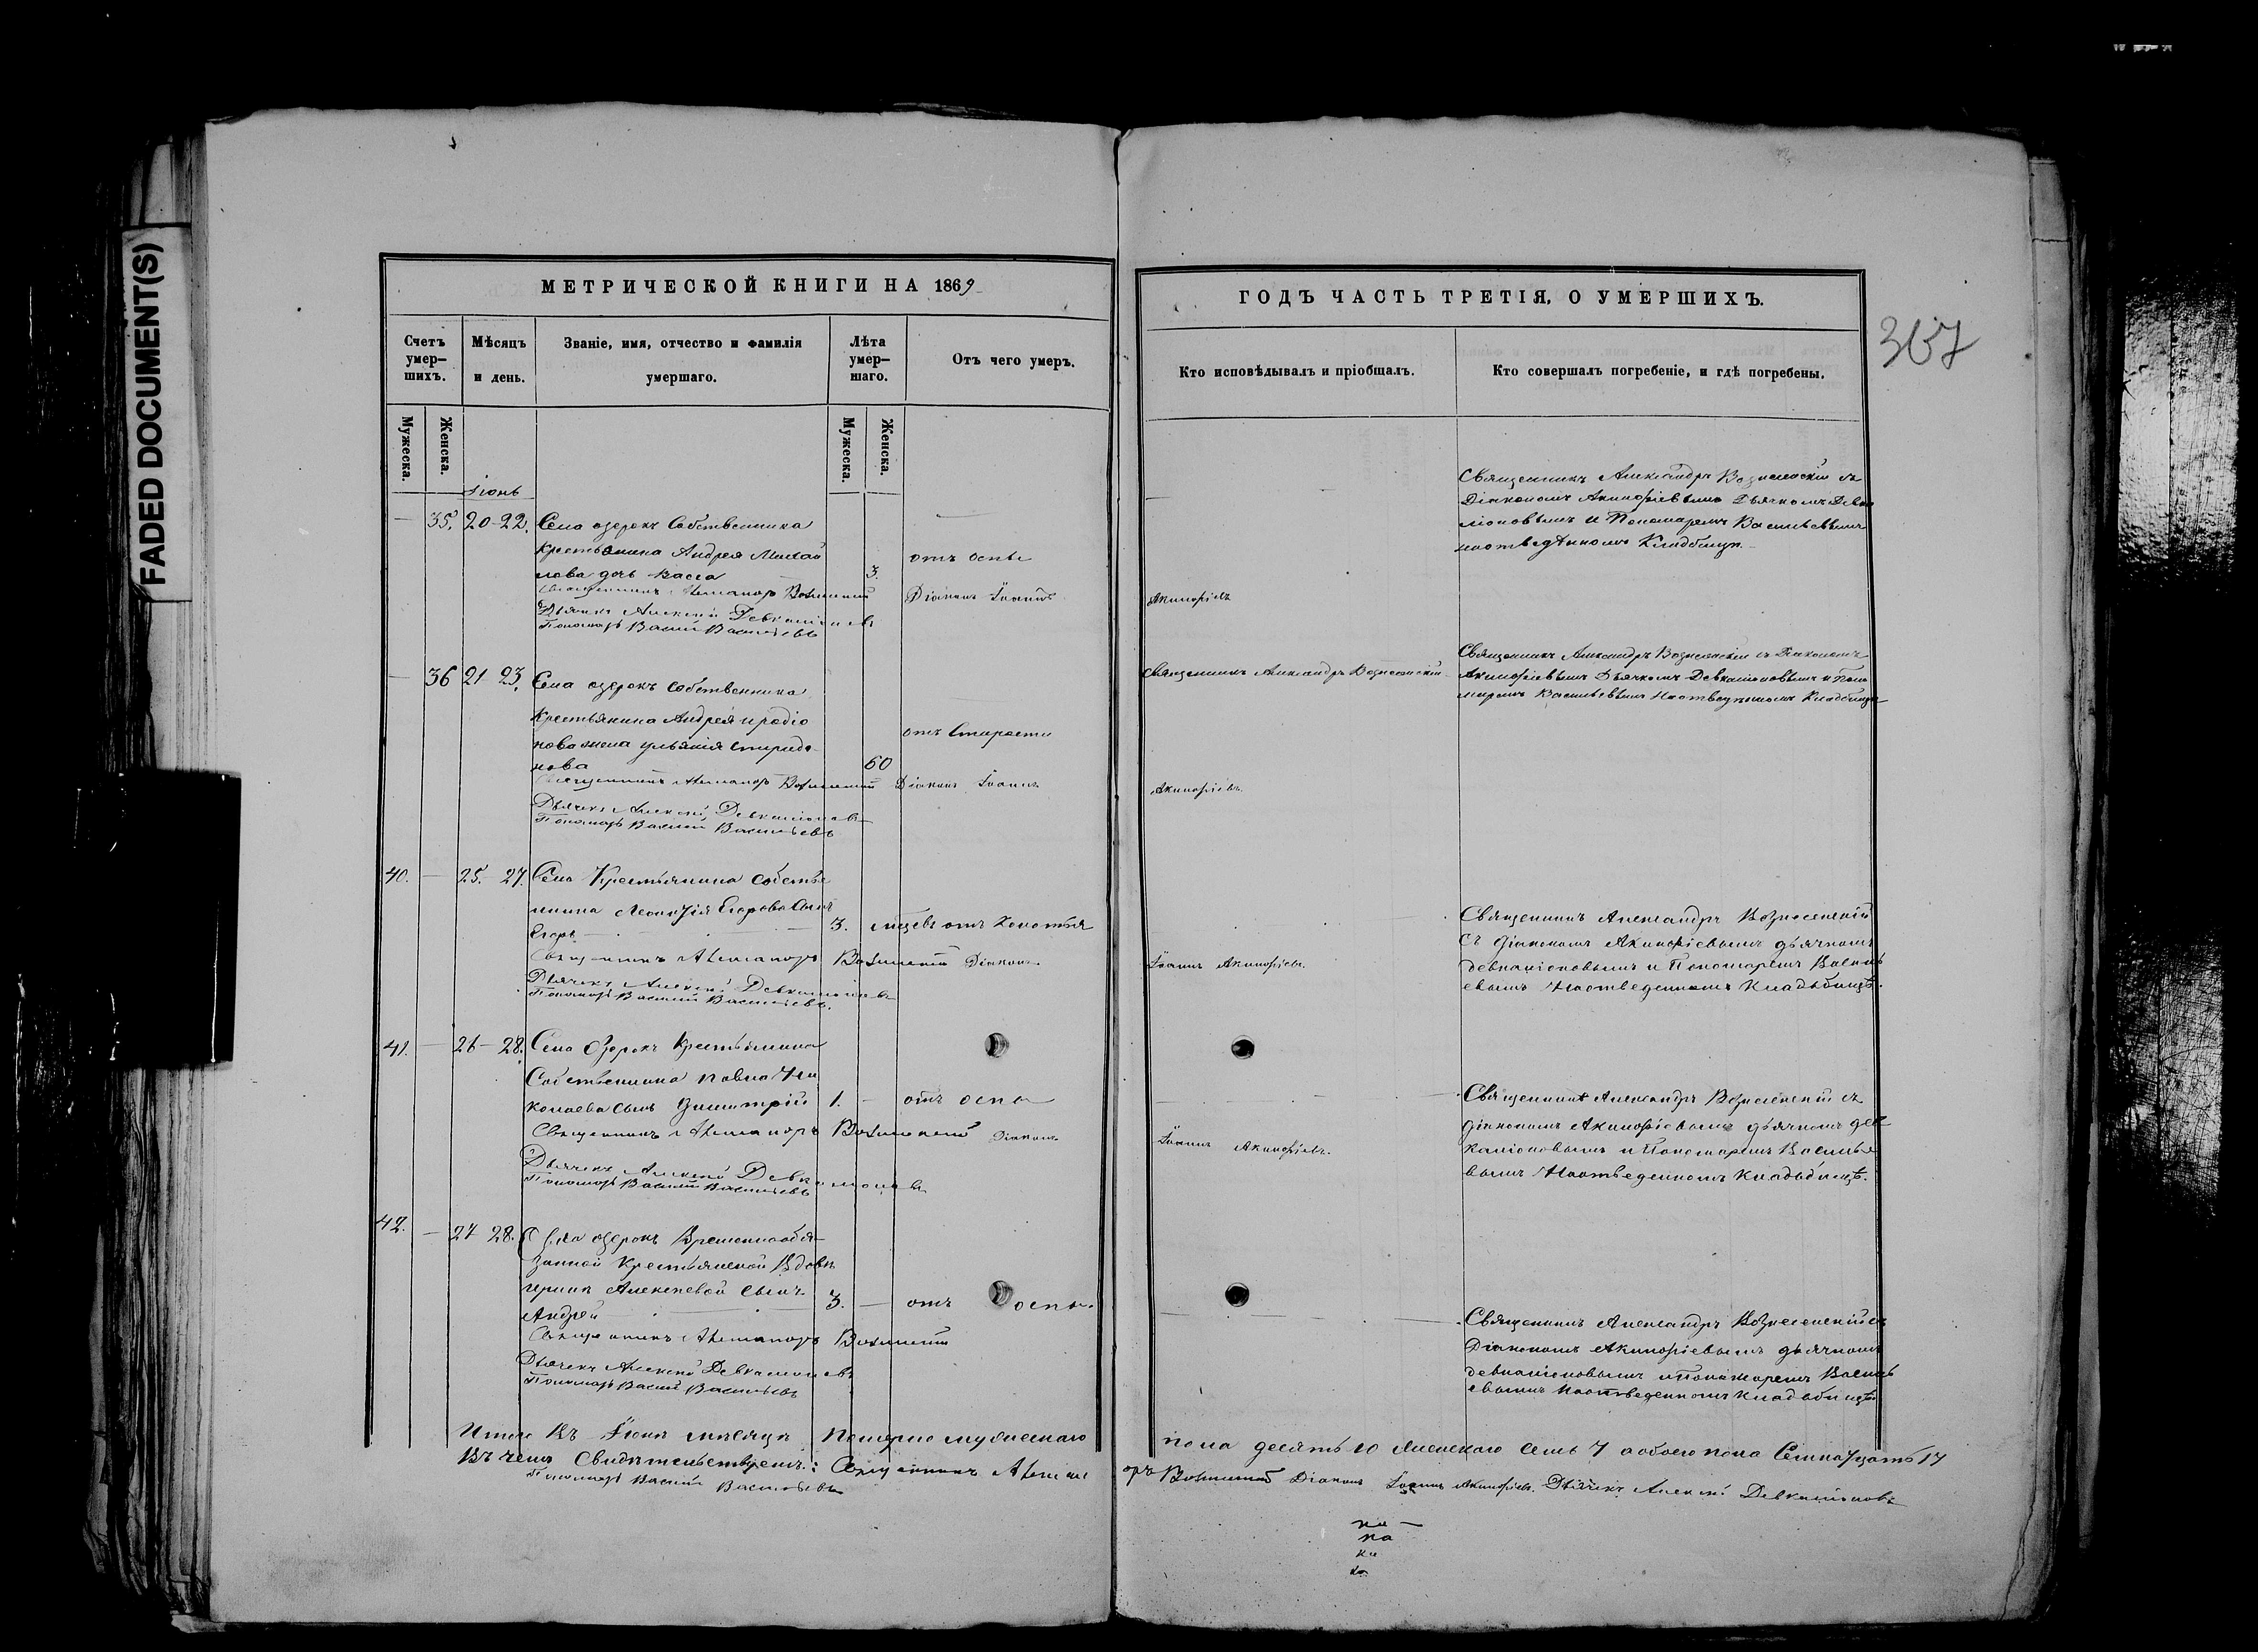 FADED DOCUMENT(S)
МЕТРИЧЕСКОЙ КНИГИ НА 1869
Счетъ умер-
шихъ.
Мѣсяцъ
и день.
Званіе, имя, отчество и фамилія
умершаго.
Лѣта
умер-
шаго.
Отъ чего умеръ.
Мужеска.
Женска.
Мужеска.
Женска.
Іюнь
35. 20-22. Села озерокъ Собственника
Крестьянина Андрея Михай
лова дочь Васса 3. отъ оспы
Священникъ Александръ Вознесенскій Діаконъ Іоаннъ
Дьячекъ Алексѣй Девкаліоновъ
Пономарь Василій Васильевъ
36 21 23. Села озерокъ Собственника
Крестьянина Андрея иродіо
нова жена ульянія спиридо-
нова 60 отъ Старости
Священникъ Александръ Вознесенскій Діаконъ Іоаннъ
Дьячекъ Алексѣй Девкаліоновъ
Пономарь Василій Васильевъ
40. 25. 27. Села Крестьянина собстве
нника Егорова Сынъ
Егоръ 3. отъ
Священникъ Александръ Вознесенскій Діаконъ
Дьячекъ Алексѣй Девкаліоновъ
Пономарь Василій Васильевъ.
41. 26-28. Села Озерокъ Крестьянина
Собственника павла Ни
колаева сынъ Димитрій 1. отъ оспы
Священникъ Александръ Вознесенскій Діаконъ
Дьячекъ Алексѣй Девкаліоновъ
Пономарь Василій Васильевъ
42. 27 28. Села озерокъ Временнообя-
занной Крестьянской Вдовы
Алексеевой сынъ
Андрей 3. отъ оспы.
Священникъ Александръ Вознесенскій
Дьячекъ Алексѣй Девкаліоновъ
Пономарь Василій Васильевъ
Итого Въ Іюнѣ мѣсяцѣ Померло мужескаго
Въ чемъ Свидѣтельствуемъ: Священникъ Александ
Пономарь Василій Васильевъ
ГОДЪ ЧАСТЬ ТРЕТІЯ, О УМЕРШИХЪ.
367
Кто исповѣдывалъ и пріобщалъ.
Кто совершалъ погребеніе, и гдѣ погребены.
Священникъ Александръ Вознесенскій съ
Діакономъ Акинфіевымъ Дьячкомъ Девка
ліоновымъ и Пономаремъ Васильевымъ
наотведенномъ Кладбищѣ.
Акинфіевъ
Священникъ Александръ Вознесенскій
Священникъ Александръ Вознесенскій съ Діакономъ
Акинфіевымъ Дьячкомъ Девкаліоновымъ и Поно
маремъ Васильевымъ Наотведенномъ Кладбищѣ
Акинфіевъ.
Священникъ Александръ Вознесенскій
Съ діакономъ Акинфіевымъ дьячкомъ
девкаліоновымъ и Пономаремъ Василь
евымъ Наотведенномъ Кладьбищѣ.
Іоаннъ Акинфіевъ.
Священникъ Александръ Вознесенскій съ
діакономъ Акинфіевымъ дьячкомъ дев
каліоновымъ и Пономаремъ Василье
вымъ Наотведенномъ Кладьбищѣ.
Іоаннъ Акинфіевъ.
Священникъ Александръ Вознесенскій съ
Діакономъ Акинфіевымъ дьячкомъ
девкаліоновымъ и Пономаремъ Василь
евымъ Наотведенномъ Кладьбищѣ
пола десять 10 женскаго семь 7 а обоего пола Семнадцать 17
ръ Вознесенскій Діаконъ Іоаннъ Акинфіевъ. Дьячекъ Алексѣй Девкаліоновъ
на